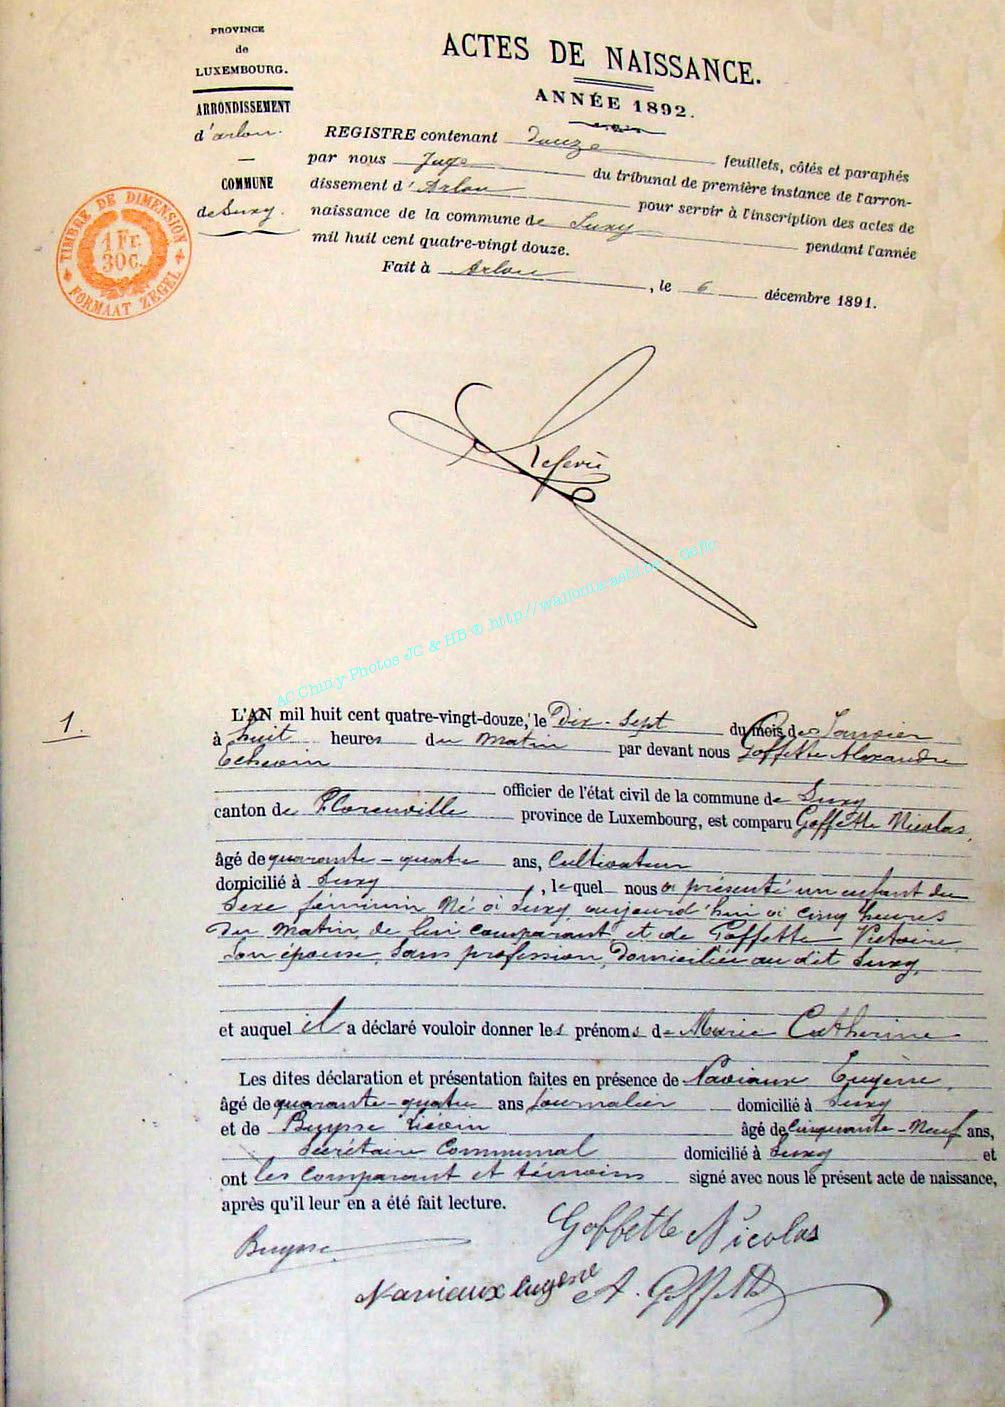 PROVINCE
de
LUXEMBOURG.
ARRONDISSEMENT
d'arlon.
COMMUNE
de Suxy.
TIMBRE DE DIMENSION
1 Fr.
30 C.
FORMAAT ZEGEL
ACTES DE NAISSANCE.
ANNÉE 1892.
REGISTRE contenant douze feuillets, côtés et paraphés
par nous Juge du tribunal de première instance de l'arron-
dissement d'Arlon pour servir à l'inscription des actes de
naissance de la commune de Suxy pendant l'année
mil huit cent quatre-vingt douze.
Fait à Arlon, le 6 décembre 1891.
AC Chiny Photos JC & HB © http://wallonia-asbl.be - Gefic
1.
L'AN mil huit cent quatre-vingt-douze, le Dix-Sept du mois de Janvier
à huit heures du Matin par devant nous Goffette Alexandre
Echevin
officier de l'état civil de la commune de Suxy
canton de Florenville province de Luxembourg, est comparu Goffette Nicolas,
âgé de quarante-quatre ans, Cultivateur
domicilié à Suxy, lequel nous a présenté un enfant du
Sexe féminin Né à Suxy, aujourd'hui à cinq heures
du Matin, de lui comparant et de Goffette Victoire,
son épouse, Sans profession, Domiciliée au dit Suxy,
et auquel il a déclaré vouloir donner les prénoms de Marie Catherine
Les dites déclaration et présentation faites en présence de Naviaux Eugène,
âgé de quarante-quatre ans Journalier domicilié à Suxy
et de Buysse Liévin âgé de Cinquante-Neuf ans,
Secrétaire Communal domicilié à Suxy et
ont les comparant et témoins signé avec nous le présent acte de naissance,
après qu'il leur en a été fait lecture.
Goffette Nicolas
Buysse
Naviaux Eugène A. Goffette